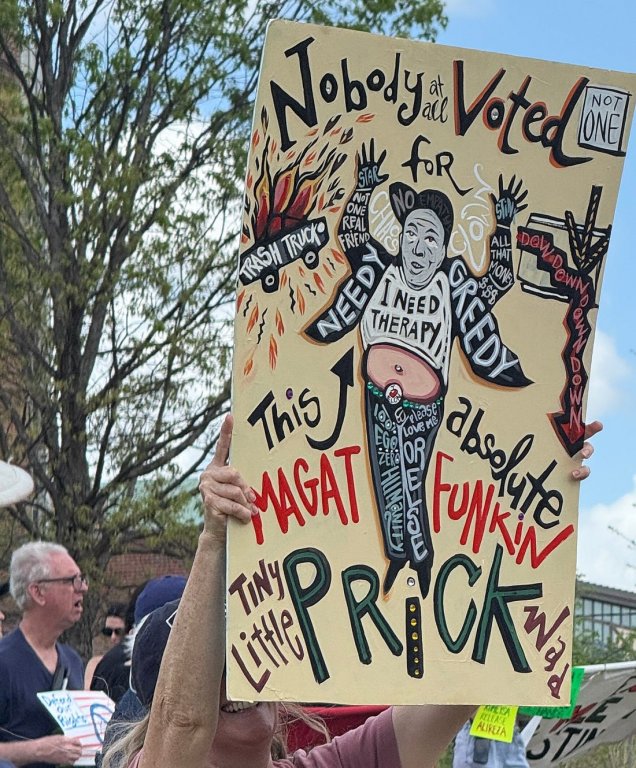 Nobody at all Voted NOT ONE
for
TRASH TRUCK
STAR
NOT ONE REAL FRIEND
NO EMPATHY
ALL THAT MONEY
$$$
DOW DOWN DOWN DOWN DOWN
NEEDY
GREEDY
I NEED THERAPY
This
absolute
100% EGO ZERO HUMANITY
Please love me
OR ELSE
MAGAT
FUNKIN
Tiny
Little
PRiCK
Wad
Defend
our
Rights
RELEASE
ALIREZA